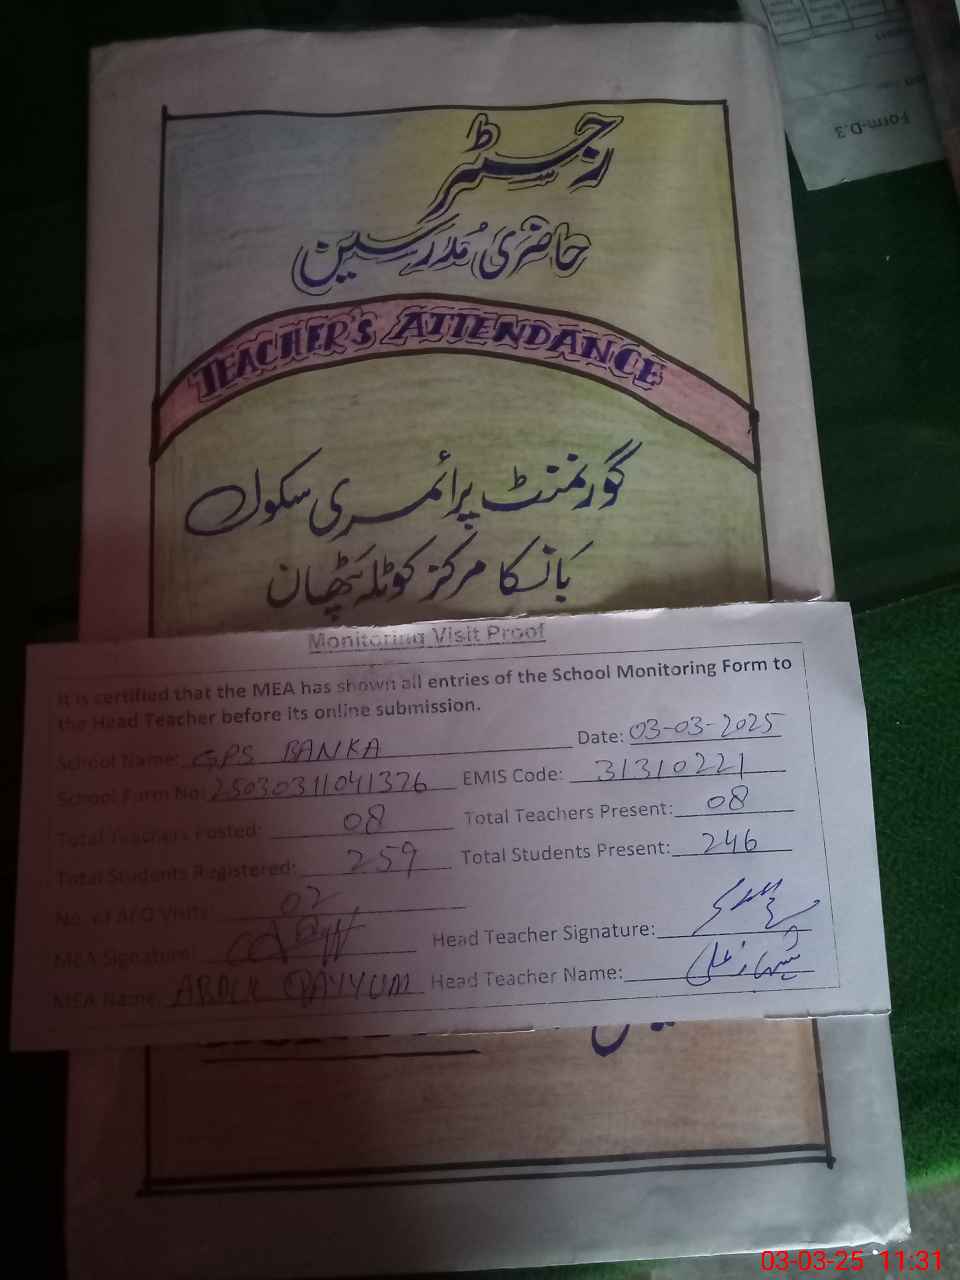 Form-D.3
رجسٹر
حاضری مدرسین
TEACHER'S ATTENDANCE
گورنمنٹ پرائمری سکول
بانکا مرکز کوٹلہ پٹھان
Monitoring Visit Proof
It is certified that the MEA has shown all entries of the School Monitoring Form to
the Head Teacher before its online submission.
School Name: GPS BANKA Date: 03-03-2025
School Form No: 25030311041376 EMIS Code: 31310221
Total Teachers Posted: 08 Total Teachers Present: 08
Total Students Registered: 259 Total Students Present: 246
No. of AEO Visits: 02
MEA Signature: Head Teacher Signature:
MEA Name: ABDUL QAYYUM Head Teacher Name: شہباز علی
03-03-25 11:31